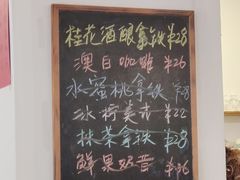 桂花酒酿拿铁 ¥28
澳白咖啡 ¥26
水蜜桃拿铁 ¥28
冰柠美式 ¥22
抹茶拿铁 ¥28
鲜果奶昔 ¥36